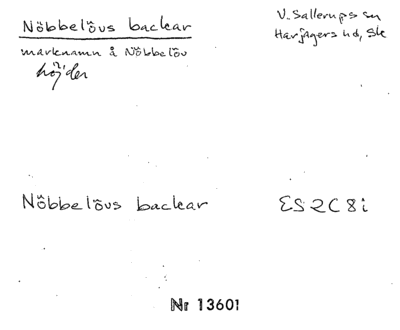 Nöbbelövs backar
V. Sallerups sn
Harjagers hd, Sk
marknamn å Nöbbelöv
höjder
Nöbbelövs backar
ES 2C 8i
Nr 13601